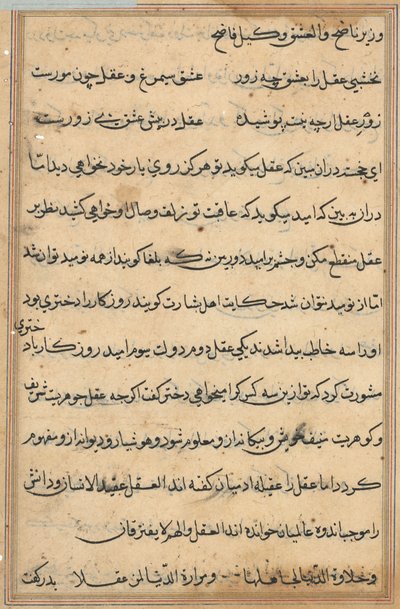 وزیر ناصح والعشق وکیل فاضح
نخشبی عقل را بعشق چه زور عشق سیمرغ و عقل چون مورست
زور عقل ارچه پوشیده عقل در پیش عشق بی زورست
ای خجسته دران ببین که عقل میکوید تو هرکز روی یار خود نخواهی دید امّا
دران ببین که امید میکوید که عاقبت تو زلف وصال او خواهی کشید نظر بر
عقل منقطع مکن و چشم بر امید دوربین نه که بلغا کویند از همه نومید توان شد
امّا از نومید نتوان شد حکایت اهل بشارت کویند روزکار را دختری بود
او را سه خاطب پیدا شدند یکی عقل دوم دولت سیوم امید روزکار با دختری
مشورت کرد که تو ازین سه کس کرا میخواهی دختر کفت اکرچه عقل جوهریست شریف
و کوهریست منیف خویش و بیکانه ازو معلوم شود و هوشیار و دیوانه ازو مفهوم
کردد اما عقل را عقیله ادمیان کفته اند العقل الانسان و دانش
را موجب اندوه عالمیان خوانده اند العقل والهم لا یفترقان
و حلاوة الدنیا لجاهلها و مرارة الدنیا لمن عقلا پدر کفت